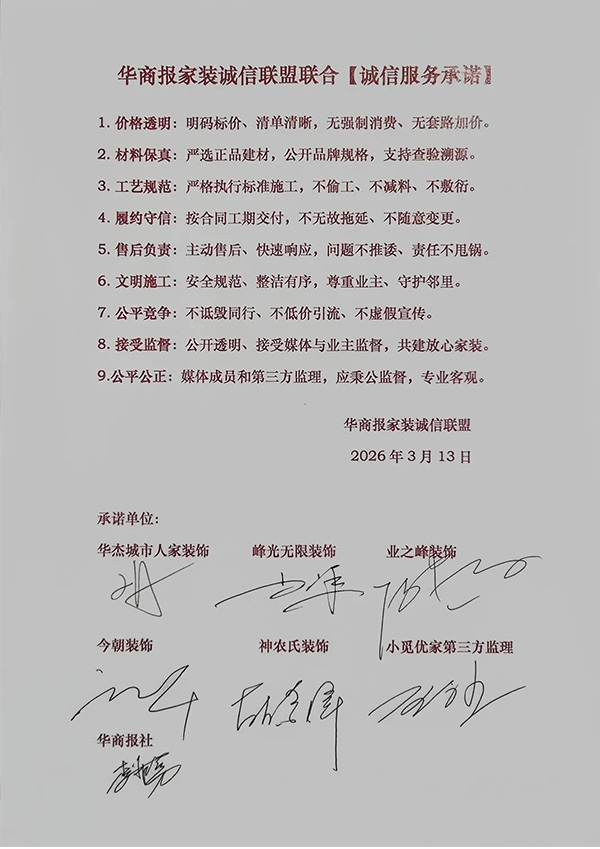 华商报家装诚信联盟联合【诚信服务承诺】
1. 价格透明：明码标价、清单清晰，无强制消费、无套路加价。
2. 材料保真：严选正品建材，公开品牌规格，支持查验溯源。
3. 工艺规范：严格执行标准施工，不偷工、不减料、不敷衍。
4. 履约守信：按合同工期交付，不无故拖延、不随意变更。
5. 售后负责：主动售后、快速响应，问题不推诿、责任不甩锅。
6. 文明施工：安全规范、整洁有序，尊重业主、守护邻里。
7. 公平竞争：不诋毁同行、不低价引流、不虚假宣传。
8. 接受监督：公开透明、接受媒体与业主监督，共建放心家装。
9.公平公正：媒体成员和第三方监理，应秉公监督，专业客观。
华商报家装诚信联盟
2026 年 3 月 13 日
承诺单位：
华杰城市人家装饰 峰光无限装饰 业之峰装饰
今朝装饰 神农氏装饰 小觅优家第三方监理
华商报社